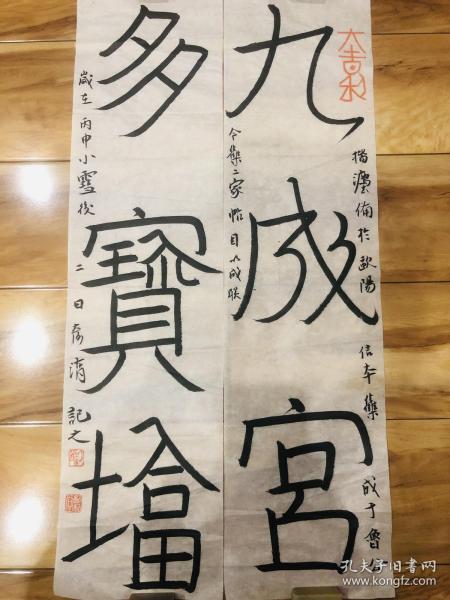 大吉利
九成宮
楷灋備於歐陽信本藝成于魯公
今集二家帖目以成联
多寶塔
歲在丙申小雪後二日
記之
孔夫子旧书网
www.kongfz.com